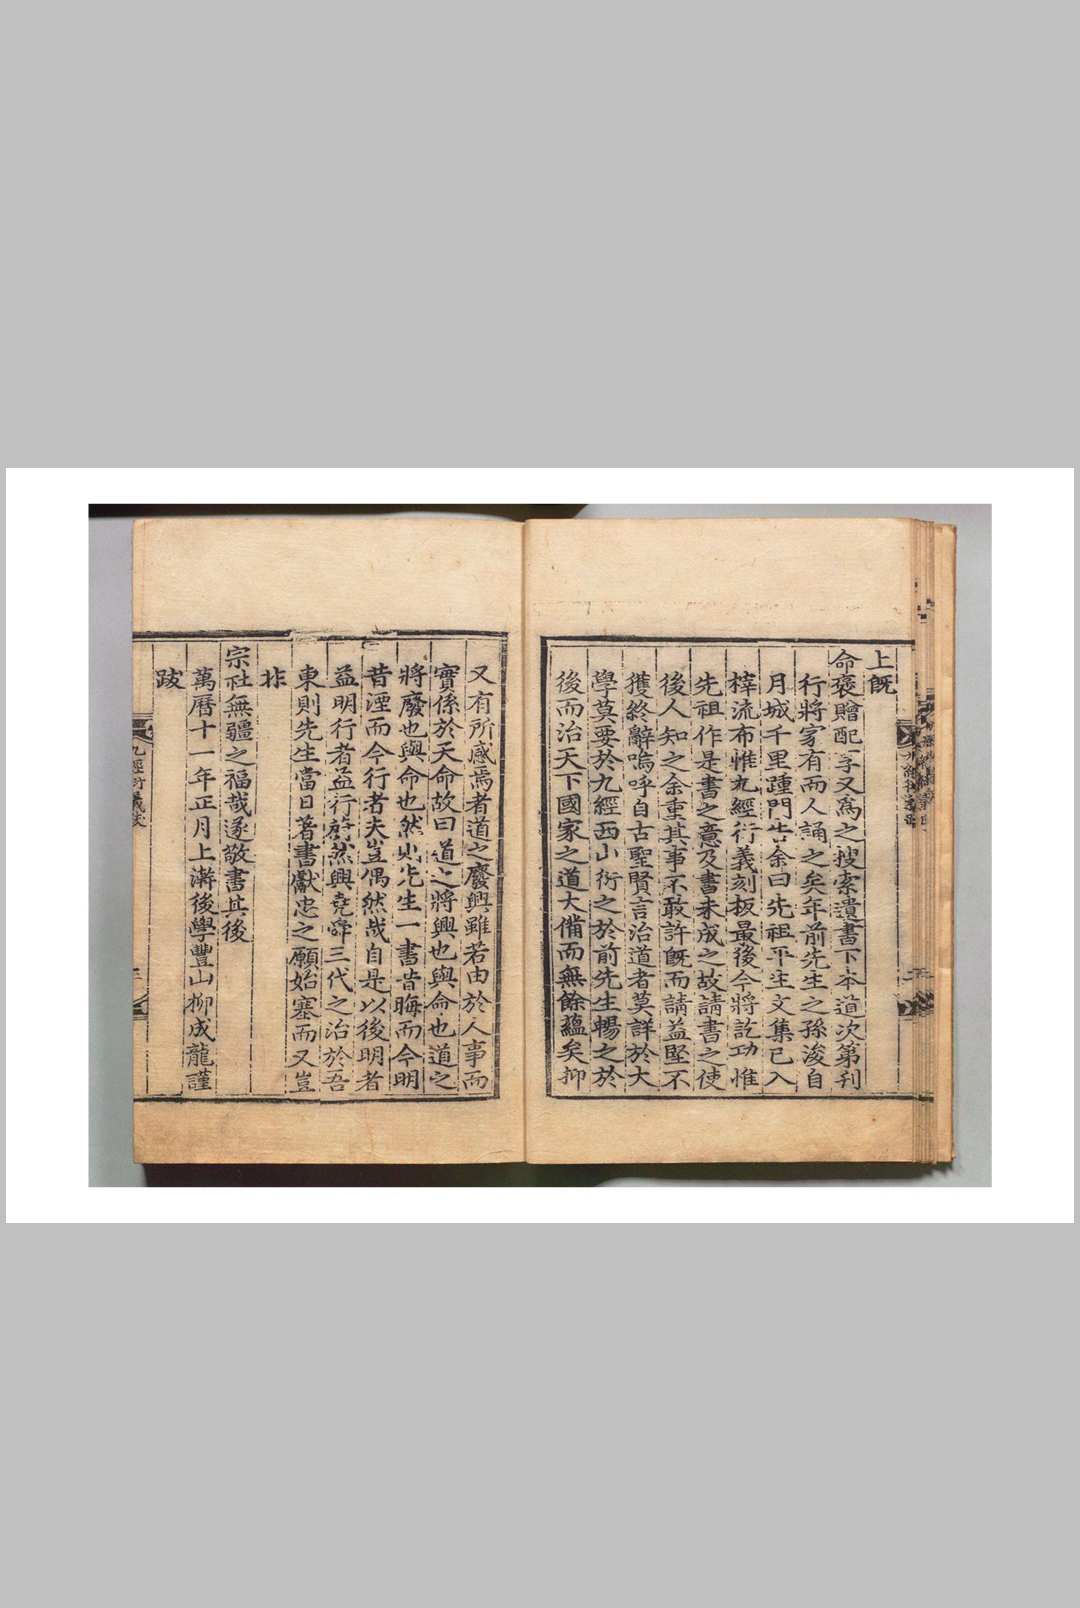 上既
命褒贈配字又為之搜索遺書下本道次第刋
行將家有而人誦之矣年前先生之孫浚自
月城千里踵門告余曰先祖平生文集已入
梓流布惟九經衍義刻板最後今將訖功惟
先祖作是書之意及書未成之故請書之使
後人知之余重其事不敢許既而請益堅不
獲終辭嗚呼自古聖賢言治道者莫詳於大
學莫要於九經西山衍之於前先生暢之於
後而治天下國家之道大備而無餘蘊矣抑
又有所感焉者道之廢興雖若由於人事而
實係於天命故曰道之將興也與命也道之
將廢也與命也然則先生一書昔晦而今明
昔湮而今行者夫豈偶然哉自是以後明者
益明行者益行蔚然興堯舜三代之治於吾
東則先生當日著書獻忠之願始塞而又豈
非
宗社無疆之福哉遂敬書其後
萬曆十一年正月上澣後學豐山柳成龍謹
跋